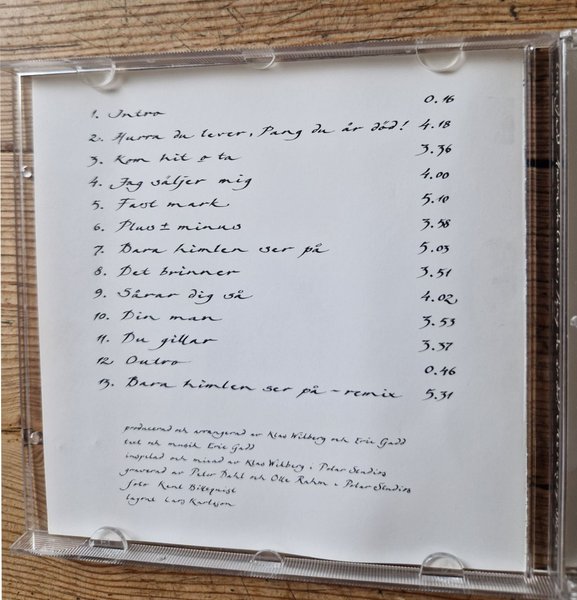 1. Intro 0.16
2. Hurra du lever, Pang du är död! 4.18
3. Kom hit o ta 3.36
4. Jag säljer mig 4.00
5. Fast mark 5.10
6. Plus ± minus 3.58
7. Bara himlen ser på 5.03
8. Det brinner 3.51
9. Sårar dig så 4.02
10. Din man 3.53
11. Du gillar 3.37
12. Outro 0.46
13. Bara himlen ser på - remix 5.31
producerad och arrangerad av Klas Wikberg och Eric Gadd
text och musik Eric Gadd
inspelad och mixad av Klas Wikberg i Polar Studios
graverad av Peter Dahl och Olle Ramm i Polar Studios
foto Kent Billeqvist
layout Lars Karlsson